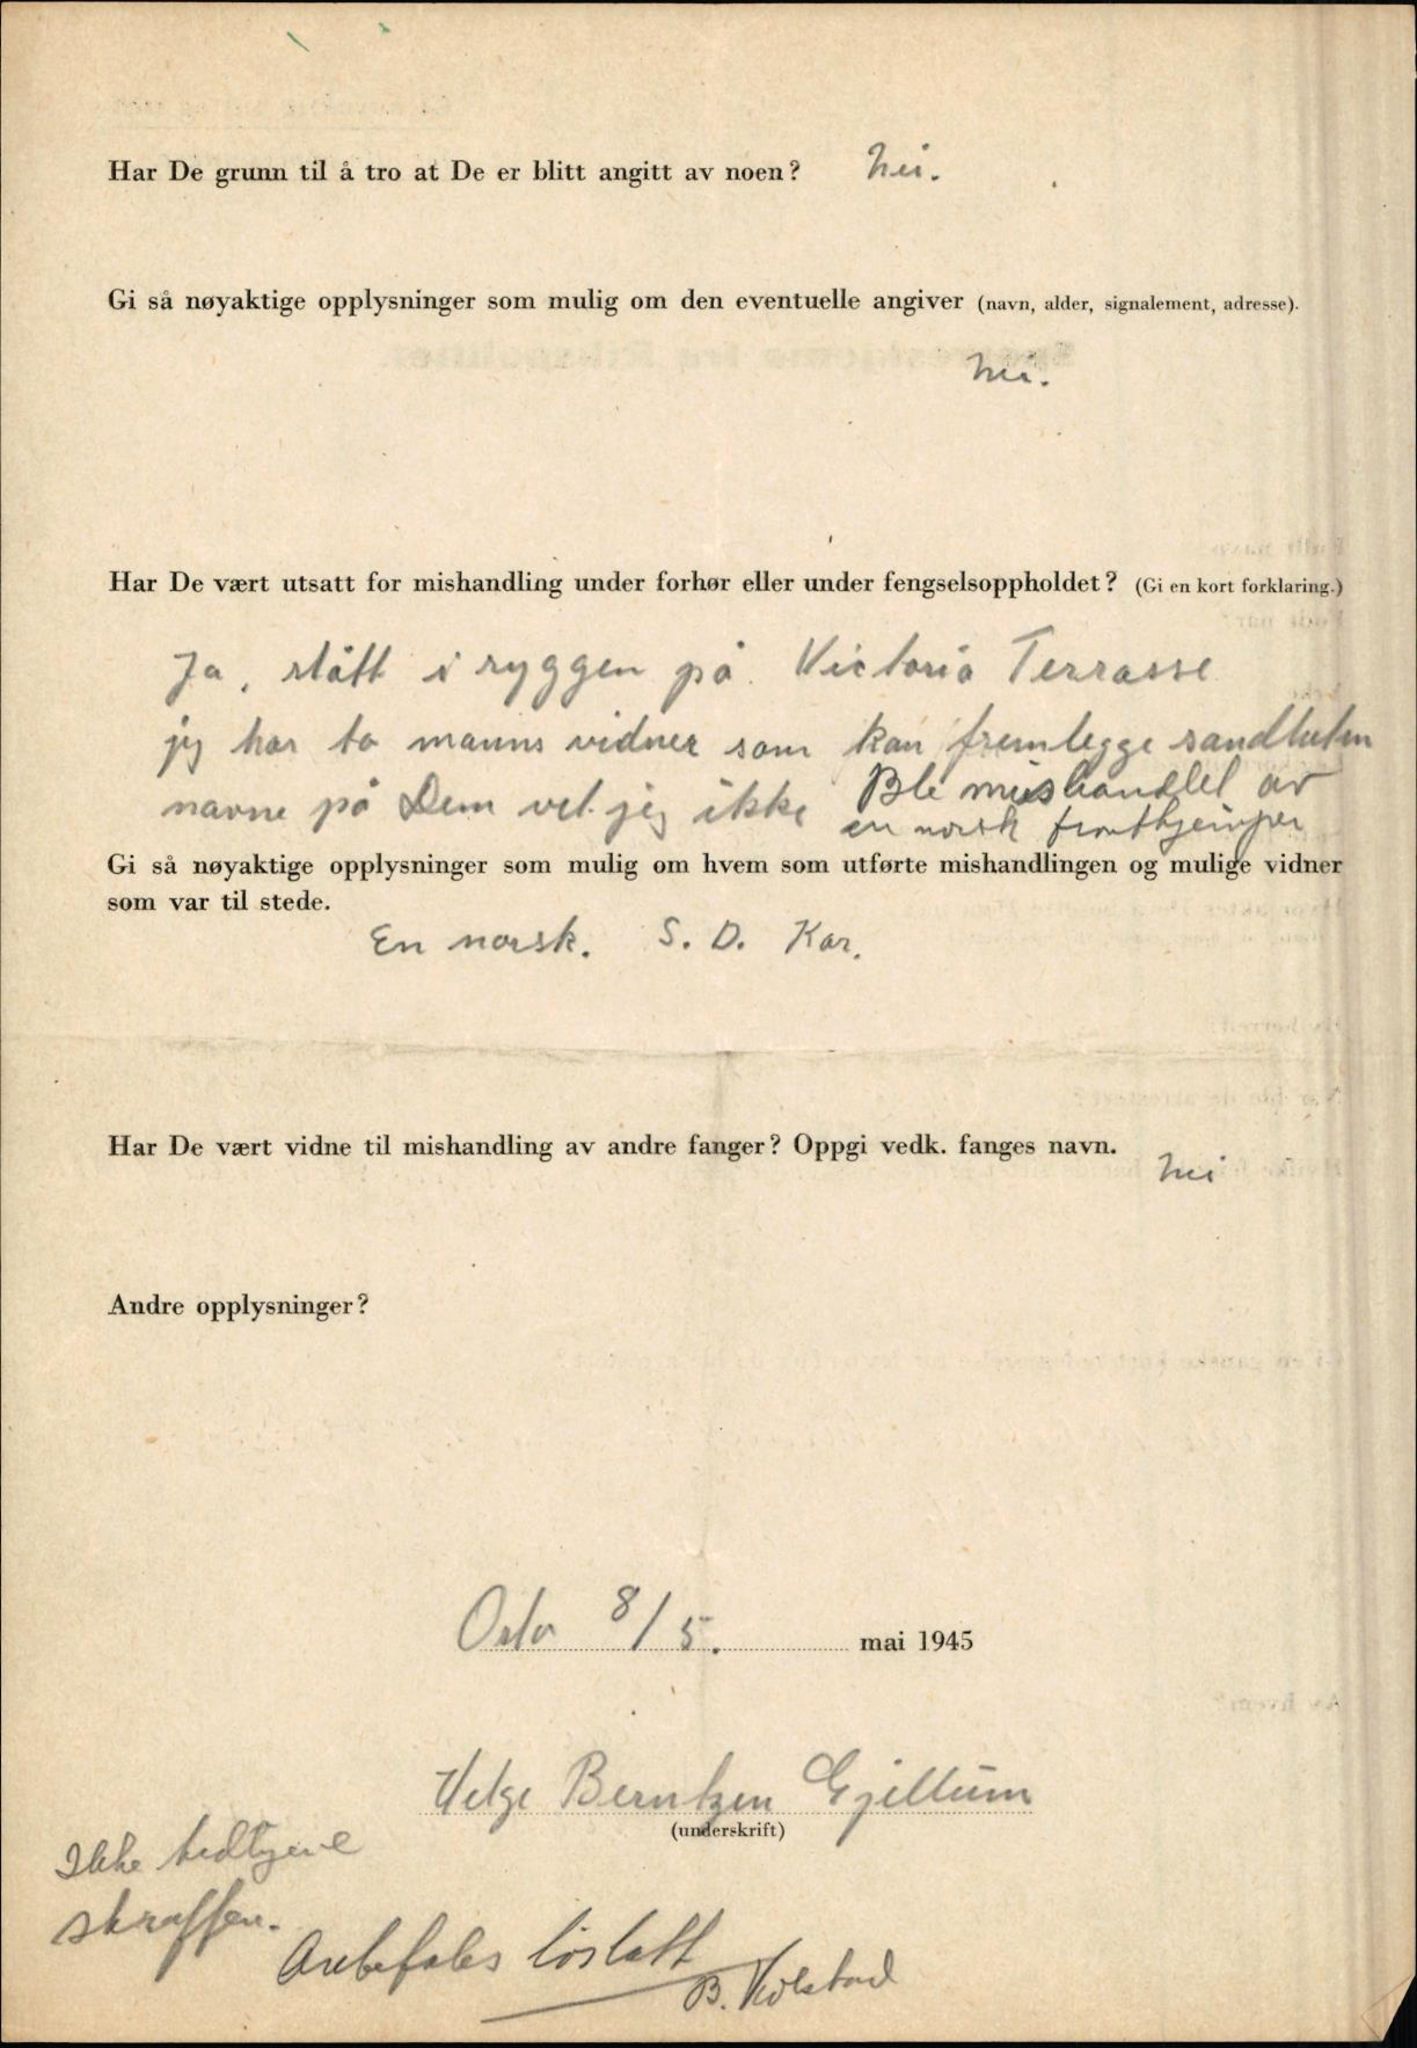 Har De grunn til å tro at De er blitt angitt av noen? Nei.
Gi så nøyaktige opplysninger som mulig om den eventuelle angiver (navn, alder, signalement, adresse).
Nei.
Har De vært utsatt for mishandling under forhør eller under fengselsoppholdet? (Gi en kort forklaring.)
Ja, slått i ryggen på Victoria Terrasse
jeg har to manns vidner som kan fremlegge sandheten
navne på Dem vet jeg ikke Ble mishandlet av
en norsk frontkjemper
Gi så nøyaktige opplysninger som mulig om hvem som utførte mishandlingen og mulige vidner
som var til stede.
En norsk. S. D. Kar.
Har De vært vidne til mishandling av andre fanger? Oppgi vedk. fanges navn.
Nei
Andre opplysninger?
Oslo 8/5. mai 1945
Helge Berntzen Gjellum
(underskrift)
Ikke
straffen.
Anbefales löslatt
B. Kolstad